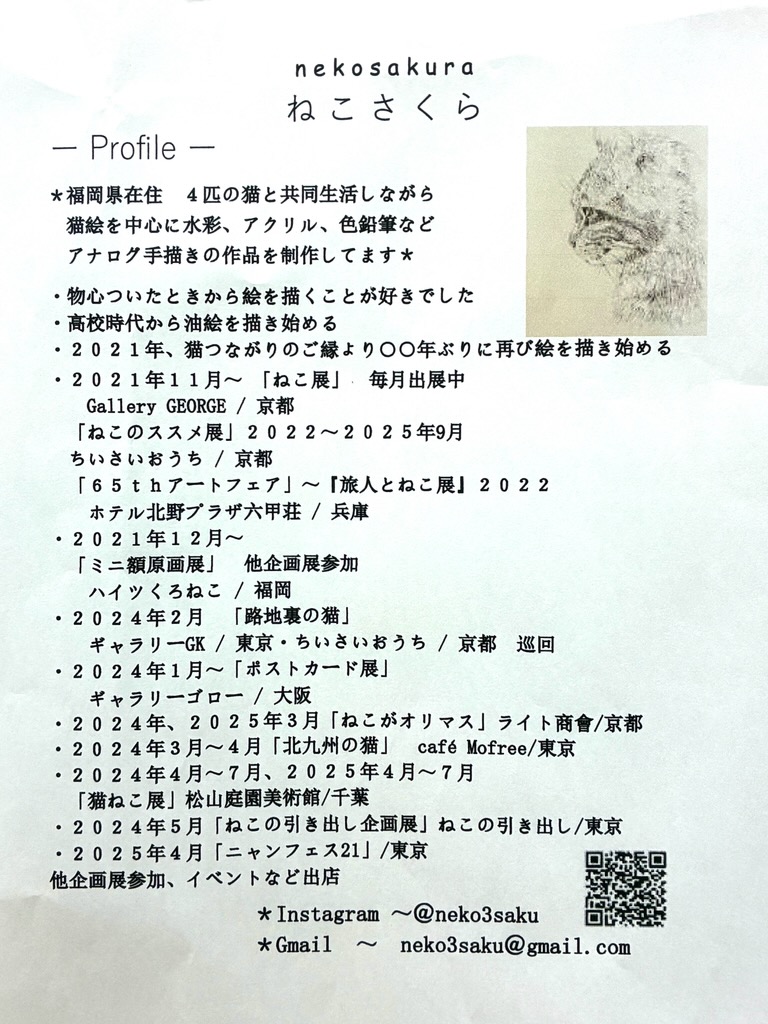 nekosakura
ねこさくら
― Profile ―
＊福岡県在住　４匹の猫と共同生活しながら
猫絵を中心に水彩、アクリル、色鉛筆など
アナログ手描きの作品を制作してます＊
・物心ついたときから絵を描くことが好きでした
・高校時代から油絵を描き始める
・２０２１年、猫つながりのご縁より〇〇年ぶりに再び絵を描き始める
・２０２１年１１月～　「ねこ展」　毎月出展中
Gallery GEORGE / 京都
「ねこのススメ展」２０２２～２０２５年9月
ちいさいおうち / 京都
「６５ｔｈアートフェア」～『旅人とねこ展』２０２２
ホテル北野プラザ六甲荘 / 兵庫
・２０２１年１２月～
「ミニ額原画展」　他企画展参加
ハイツくろねこ / 福岡
・２０２４年２月　「路地裏の猫」
ギャラリーGK / 東京・ちいさいおうち / 京都　巡回
・２０２４年１月～「ポストカード展」
ギャラリーゴロー / 大阪
・２０２４年、２０２５年３月「ねこがオリマス」ライト商會/京都
・２０２４年３月～４月「北九州の猫」　café Mofree/東京
・２０２４年４月～７月、２０２５年４月～７月
「猫ねこ展」松山庭園美術館/千葉
・２０２４年５月「ねこの引き出し企画展」ねこの引き出し/東京
・２０２５年４月「ニャンフェス21」/東京
他企画展参加、イベントなど出店
＊Instagram ～@neko3saku
＊Gmail　～　neko3saku@gmail.com